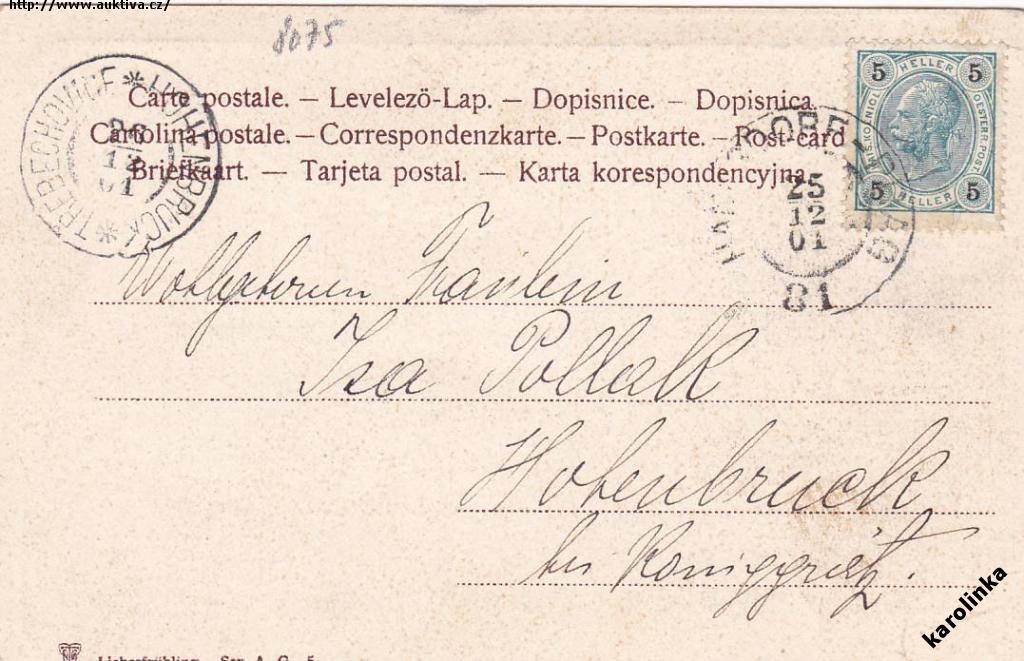 http://www.auktiva.cz/
8075
TŘEBECHOVICE * HOHENBRUCK *
26
12
01
Carte postale. – Levelező-Lap. – Dopisnice. – Dopisnica.
Cartolina postale. – Correspondenzkarte. – Postkarte. – Post card
Briefkaart. — Tarjeta postal. — Karta korespondencyjna.
5 HELLER 5
5 HELLER 5
OESTERR. POST
25
12
01
81
Wohlgeboren Fräulein
Isa Pollak
Hohenbruck
bei Königgrätz.
Liebesfrühling Ser. A. G. 5
karolinka